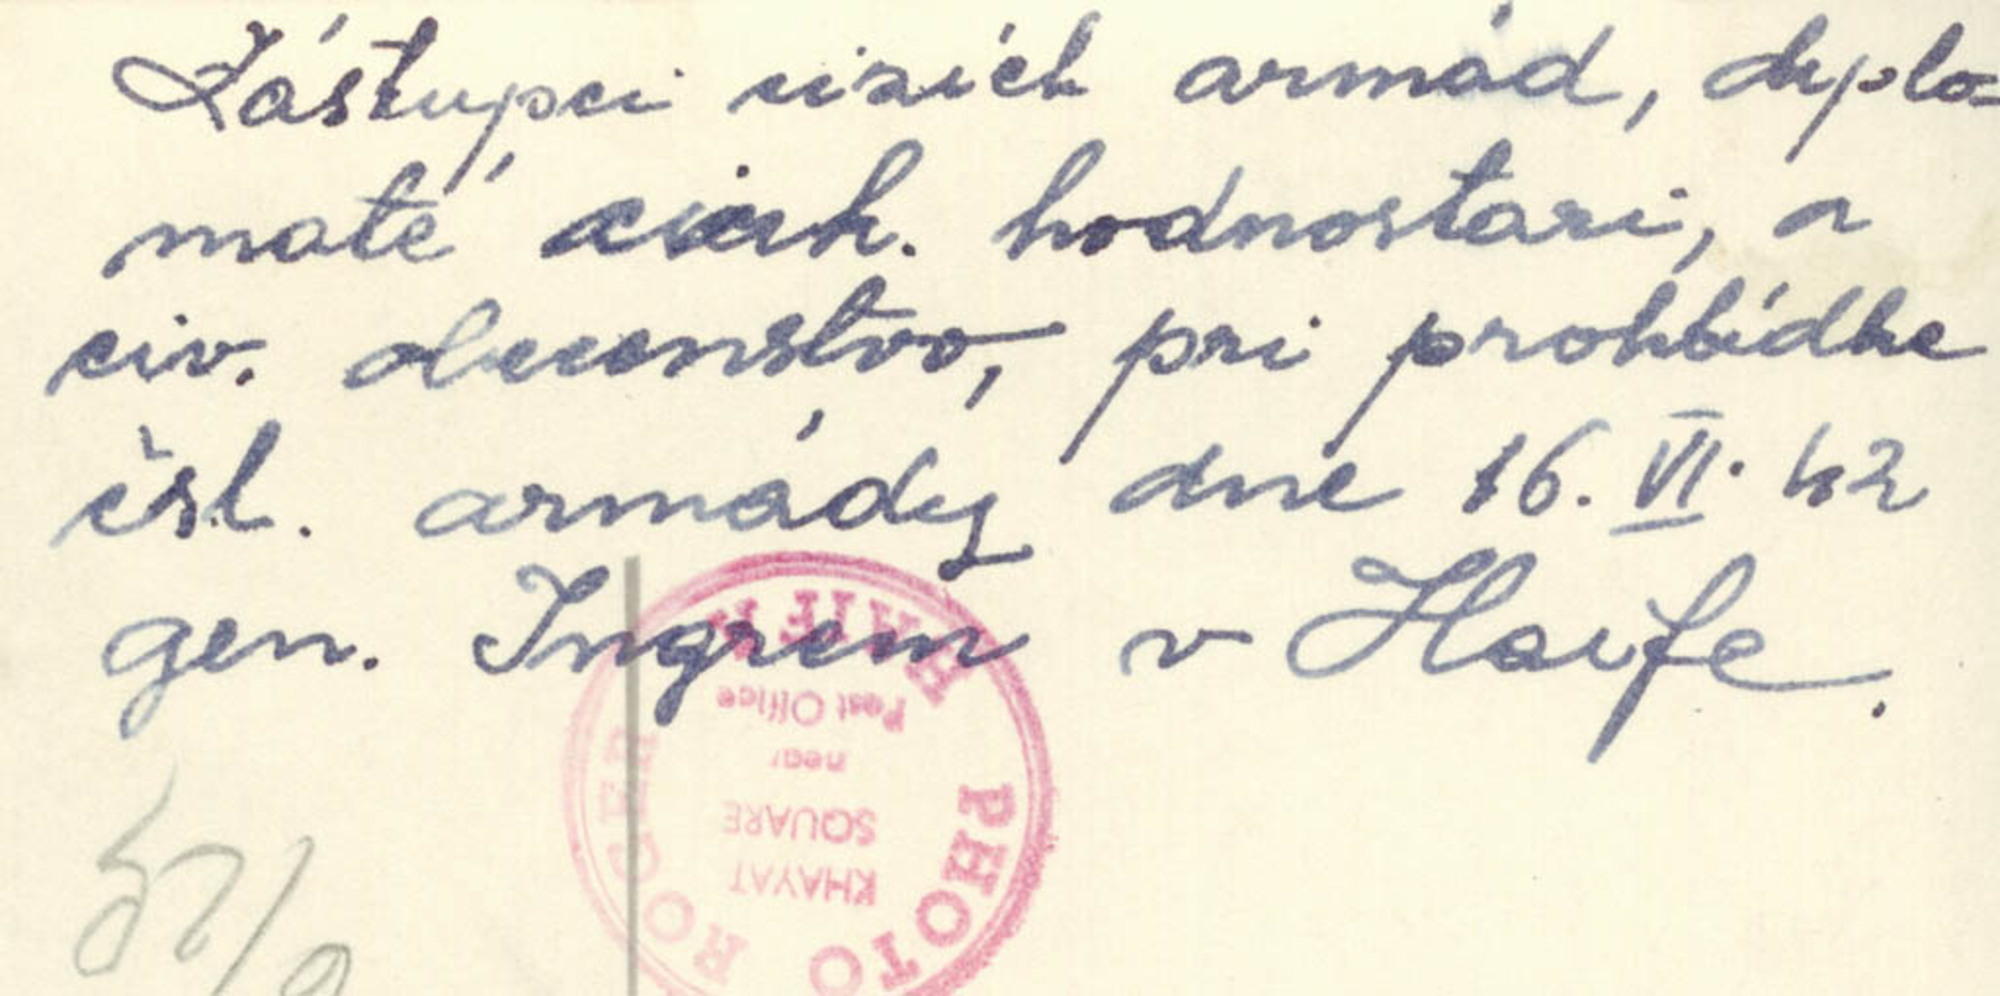 Zástupci cizích armád, diplo-
maté církh. hodnostari, a
civ. obecenstvo, pri prohlídke
čsl. armády dne 16. VI. 42
gen. Ingrem v Haife.
PHOTO ROGER HAIFA
KHAYAT
SQUARE
near
Post Office